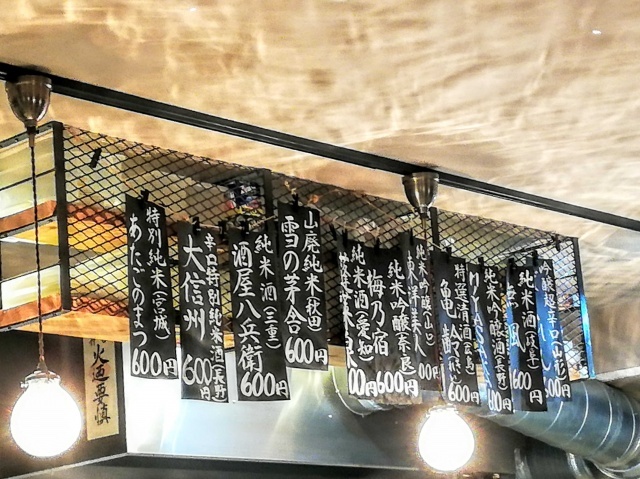 特別純米(宮城)
あたごのまつ
600円
辛口特別純米酒(長野)
大信州
600円
純米酒(三重)
酒屋八兵衛
600円
山廃純米(秋田)
雪の茅舎
600円
純米酒(愛知)
00円
純米吟醸(奈良)
梅乃宿
600円
純米吟醸(山口)
東洋美人
00円
特選清酒(広島)
亀齢
600円
純米吟醸(長野)
600円
純米酒(岐阜)
600円
吟醸超辛口(山形)
600円
火迺要慎